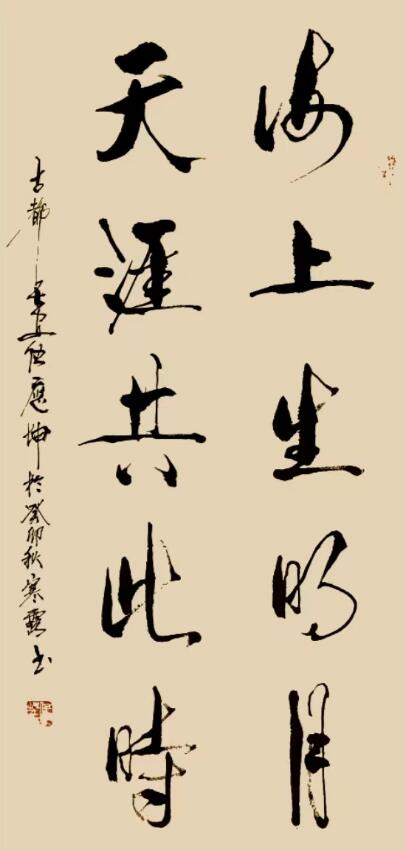 海上生明月
天涯共此时
古都任應坤於癸卯秋寒露书